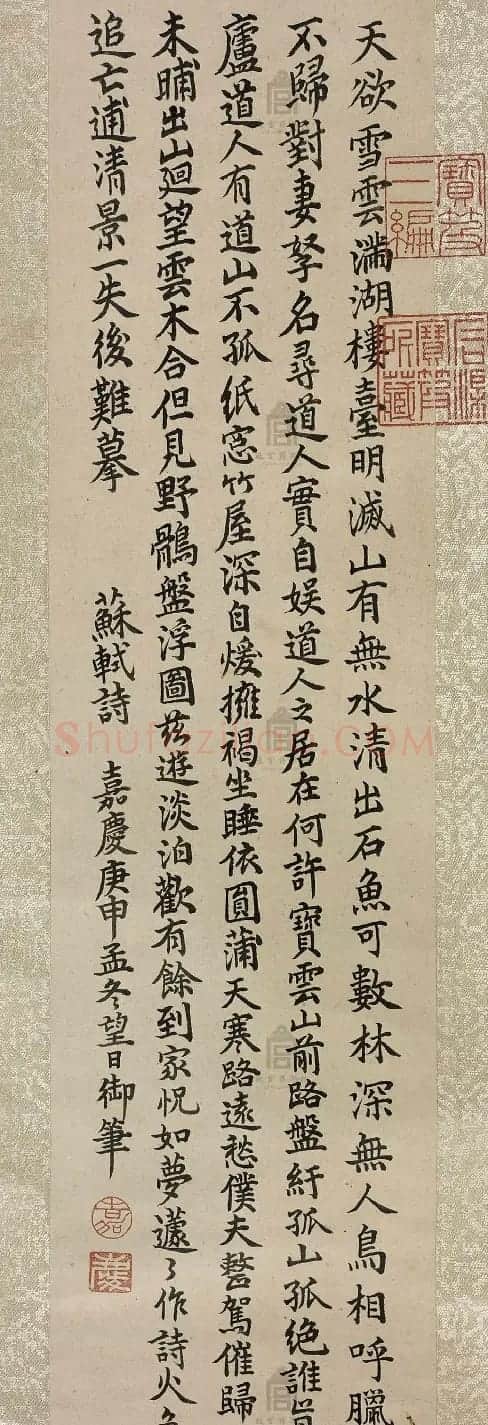 天欲雪雲滿湖樓臺明滅山有無水清出石魚可數林深無人鳥相呼臘
不歸對妻孥名尋道人實自娛道人之居在何許寶雲山前路盤紆孤山孤絕誰肯
廬道人有道山不孤紙窓竹屋深自煖擁褐坐睡依圓蒲天寒路遠愁僕夫整駕催歸
未晡出山廻望雲木合但見野鶻盤浮圖茲遊淡泊歡有餘到家怳如夢蘧々作詩火
追亡逋清景一失後難摹
蘇軾詩
嘉慶庚申孟冬望日御筆
嘉
慶
寶笈
三編
石渠
寶笈
所藏